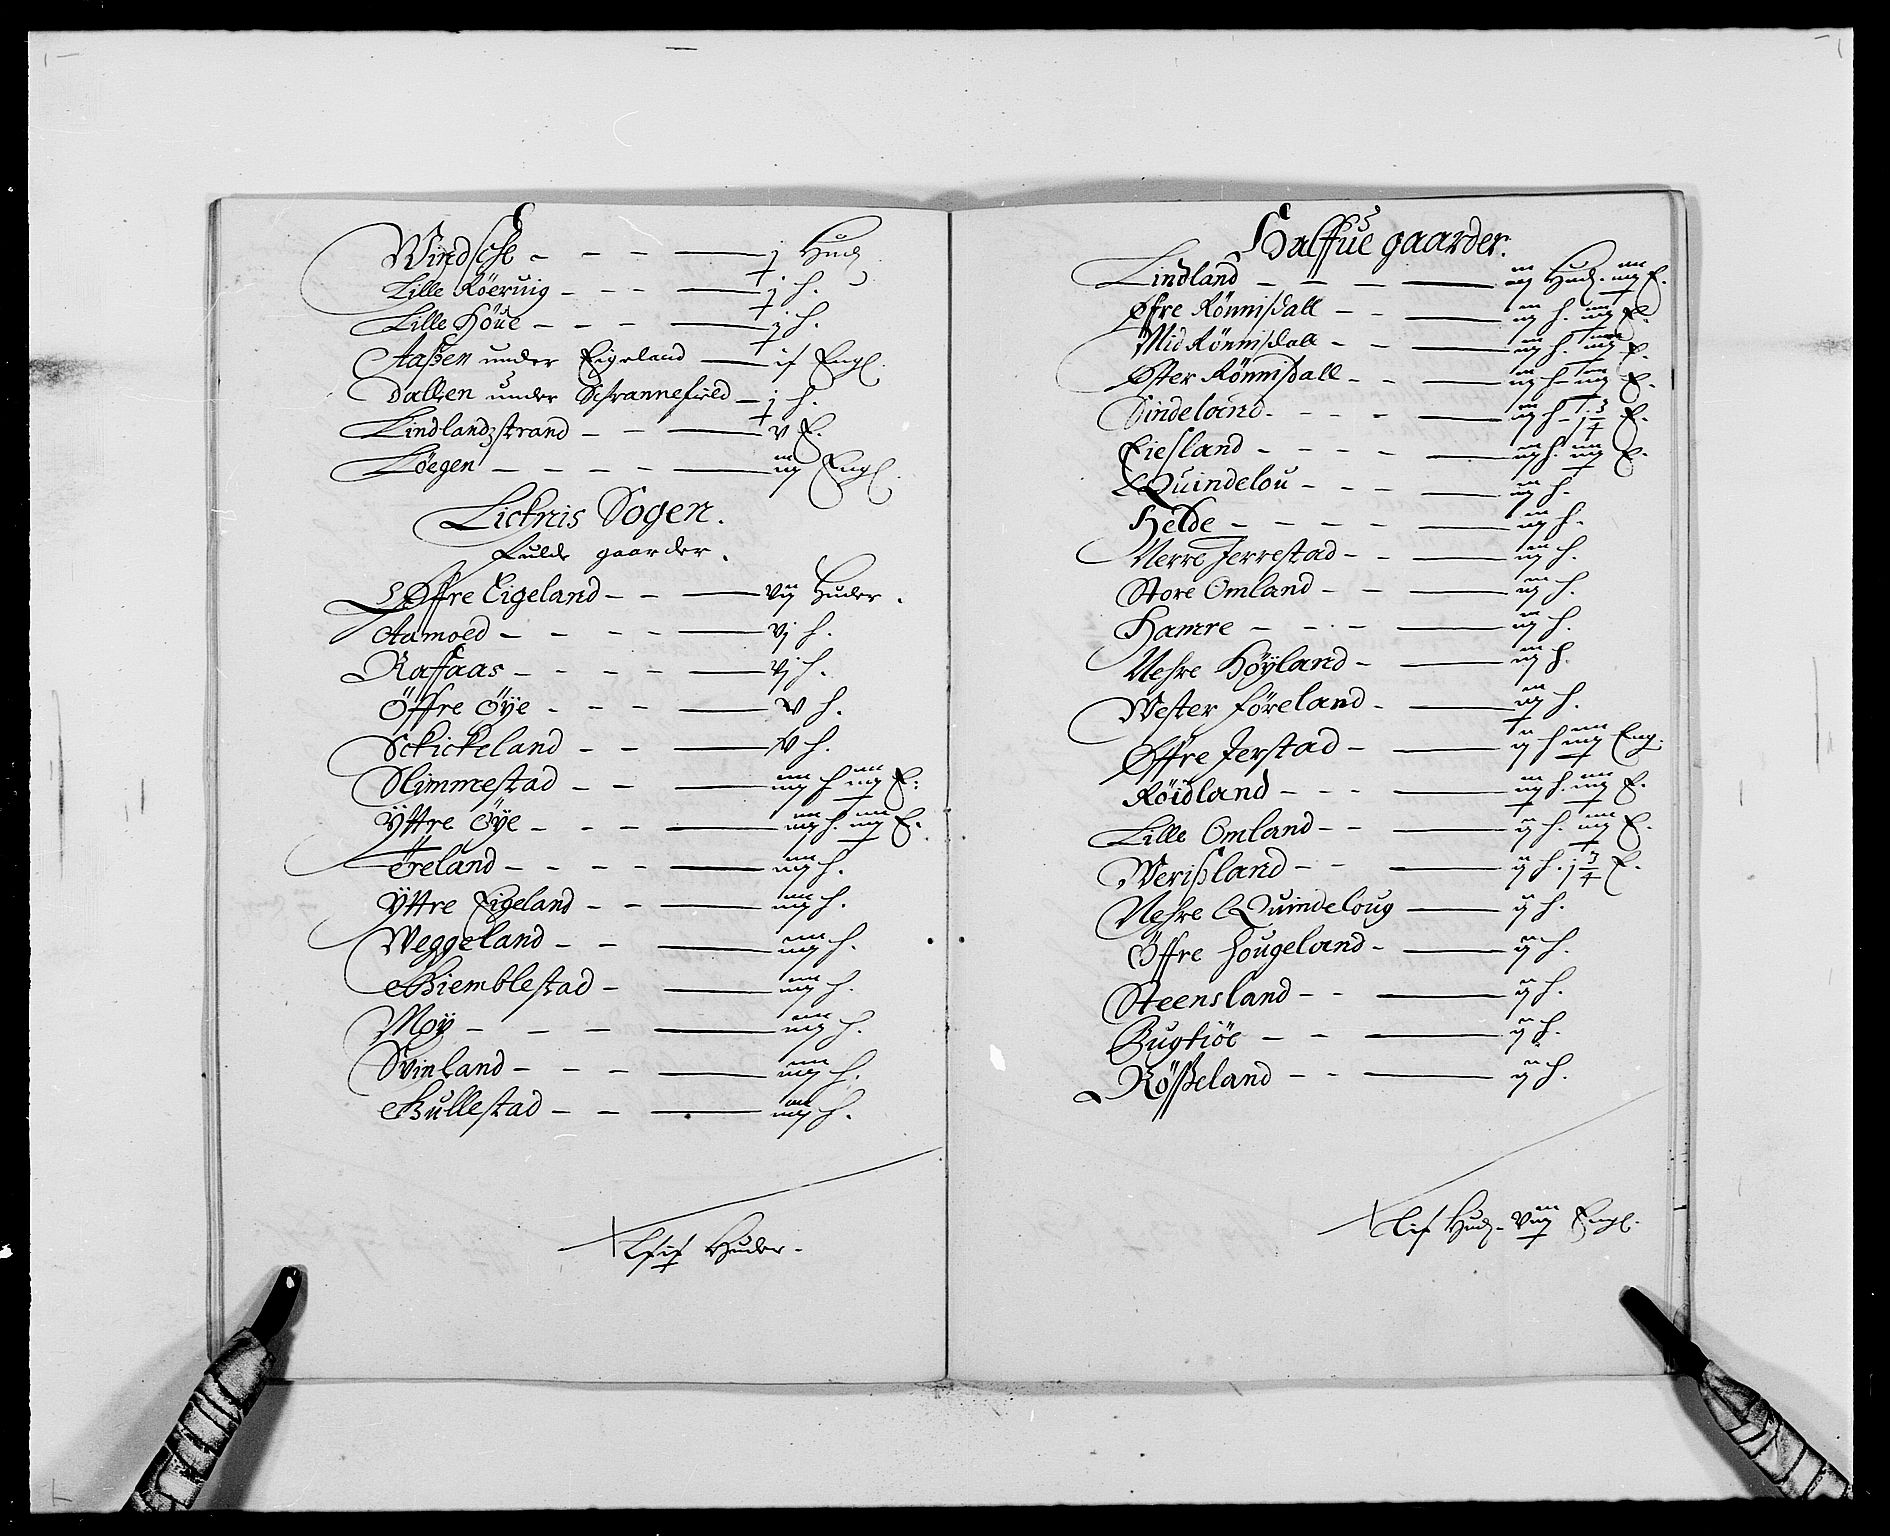 Windsche - - - j Hud
Lille Röeruig - - - j h.
Lille Höue - - - j h.
Aaßen under Eigeland
Dallen under - j h.
Lindlandzstrand - - v E.
Löegen - - - - iij Engl.
Licknis Sogen.
Fulde gaarder.
Øffre Eigeland - - vij Huder.
Aamoed - - - - vj h.
Raffaas - - - - vj h.
Öffre Öÿe - - - v h.
Sckickeland - - v h.
Slimmestad - - iiij h iiij E.
Ÿttre Öÿe - - - iiij h. iiij E.
Öreland - - - - iiij h.
Ÿttre Eigeland - - iiij h.
Weggeland - - iiij h.
Giemblestad - iiij h.
Moÿ - - - iiij h.
Svinland - - - iiij h.
Gullestad - - iiij h.
Huder.
Halffue gaarder.
Lindland - - - iij Hud. iiij E.
Øfre Rönnisdall - - iij h. iiij E.
Mid Rönnisdall - - iij h. iiij E.
Øster Rönnisdall - - iij h - iiij E.
Sindeland - - - iij h - j 3/4 E.
Eiesland - - - - iij h. iiij E.
Quindelou - - - iij h.
Helde - - - - iij h.
Nerre Jerrestad - - iij h.
Store Omland - - iij h.
Hamre - - - iij h.
Nehre Höÿland - iij h.
Wester Föreland - iij h.
Øffre Jerstad - ij h iiij Eng.
Röidland - - - iij h. iiij E.
Lille Omland - - ij h. iiij E.
Werißland - - ij h. j 3/4 E.
Nehre Quindeloug ij h.
Öffre Hougeland - ij h.
Steensland - - ij h.
Bugtiöe - - ij h.
Rößeland - - ij h.
Hud. Engl.